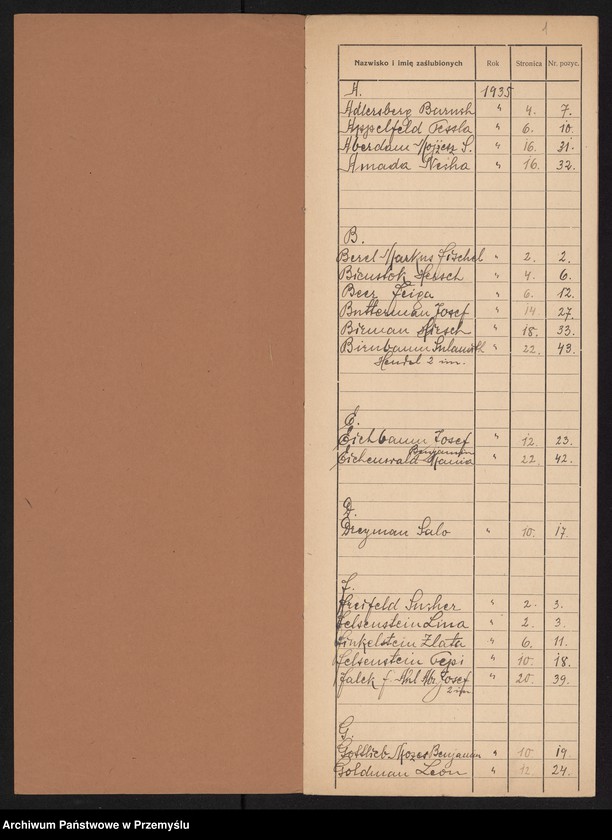 1
Nazwisko i imię zaślubionych Rok Stronica Nr. pozyc.
A. 1935
Adlersberg Baruch " 4. 7.
Appelfeld Tessla " 6. 10.
Aberdam Mojżesz S. " 16. 31.
Amada Neiha " 16. 32.
B.
Berel Markus Fischel " 2. 2.
Bienstok Hersch " 4. 6.
Beer Feiga " 6. 12.
Butterman Josef " 14 27.
Birman Hirsch " 18. 33.
Birnbaum Sulamith " 22. 43.
Hendel 2 im.
E.
Eichbaum Josef " 12. 23.
Benjamin
Eichenwald Mania " 22. 42.
D.
Dreyman Salo " 10. 17.
F.
Freifeld Sucher " 2. 3.
Felsenstein Lina " 2. 3.
Finkelstein Zlata " 6. 11.
Felsenstein Pepi " 10. 18.
Falek f Josef " 20. 39.
2 im
G.
Gottlieb Mozes Benjamin " 10. 19
Goldman Leon " 12. 24.
Archiwum Państwowe w Przemyślu